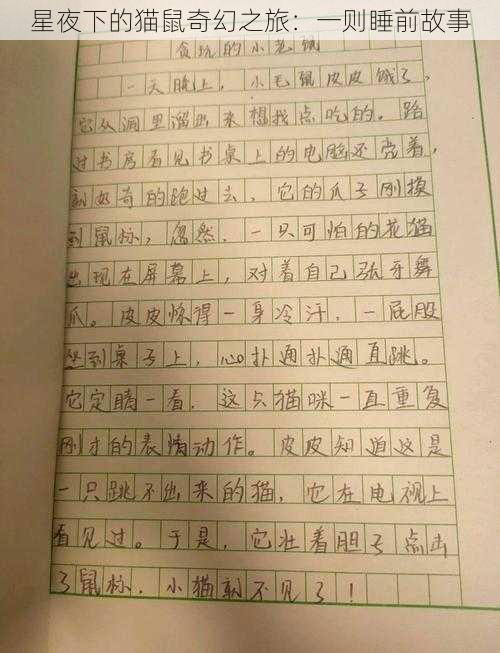 星夜下的猫鼠奇幻之旅：一则睡前故事
贪玩的小老鼠
一天晚上，小毛鼠皮皮饿了，
它从洞里溜出来想找点吃的。路
过书房看见书桌上的电脑还亮着，
到好奇的跑过去，它的爪子刚摸
到鼠标，忽然，一只可怕的花猫
出现在屏幕上，对着自己张牙舞
爪。皮皮惊得一身冷汗，一屁股
坐到桌子上，心扑通扑通直跳。
它定睛一看，这只猫咪一直重复
刚才的表情动作。皮皮知道这是
一只跳不出来的猫，它在电视上
看见过。于是，它壮着胆子点击
了鼠标，小猫就不见了！